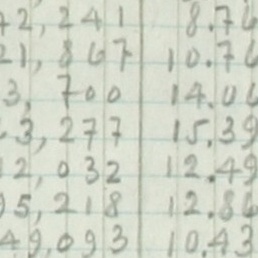 42,241 8.76
21,867 10.76
3,700 14.06
3,277 15.39
12,032 12.49
95,218 12.86
49,093 10.43